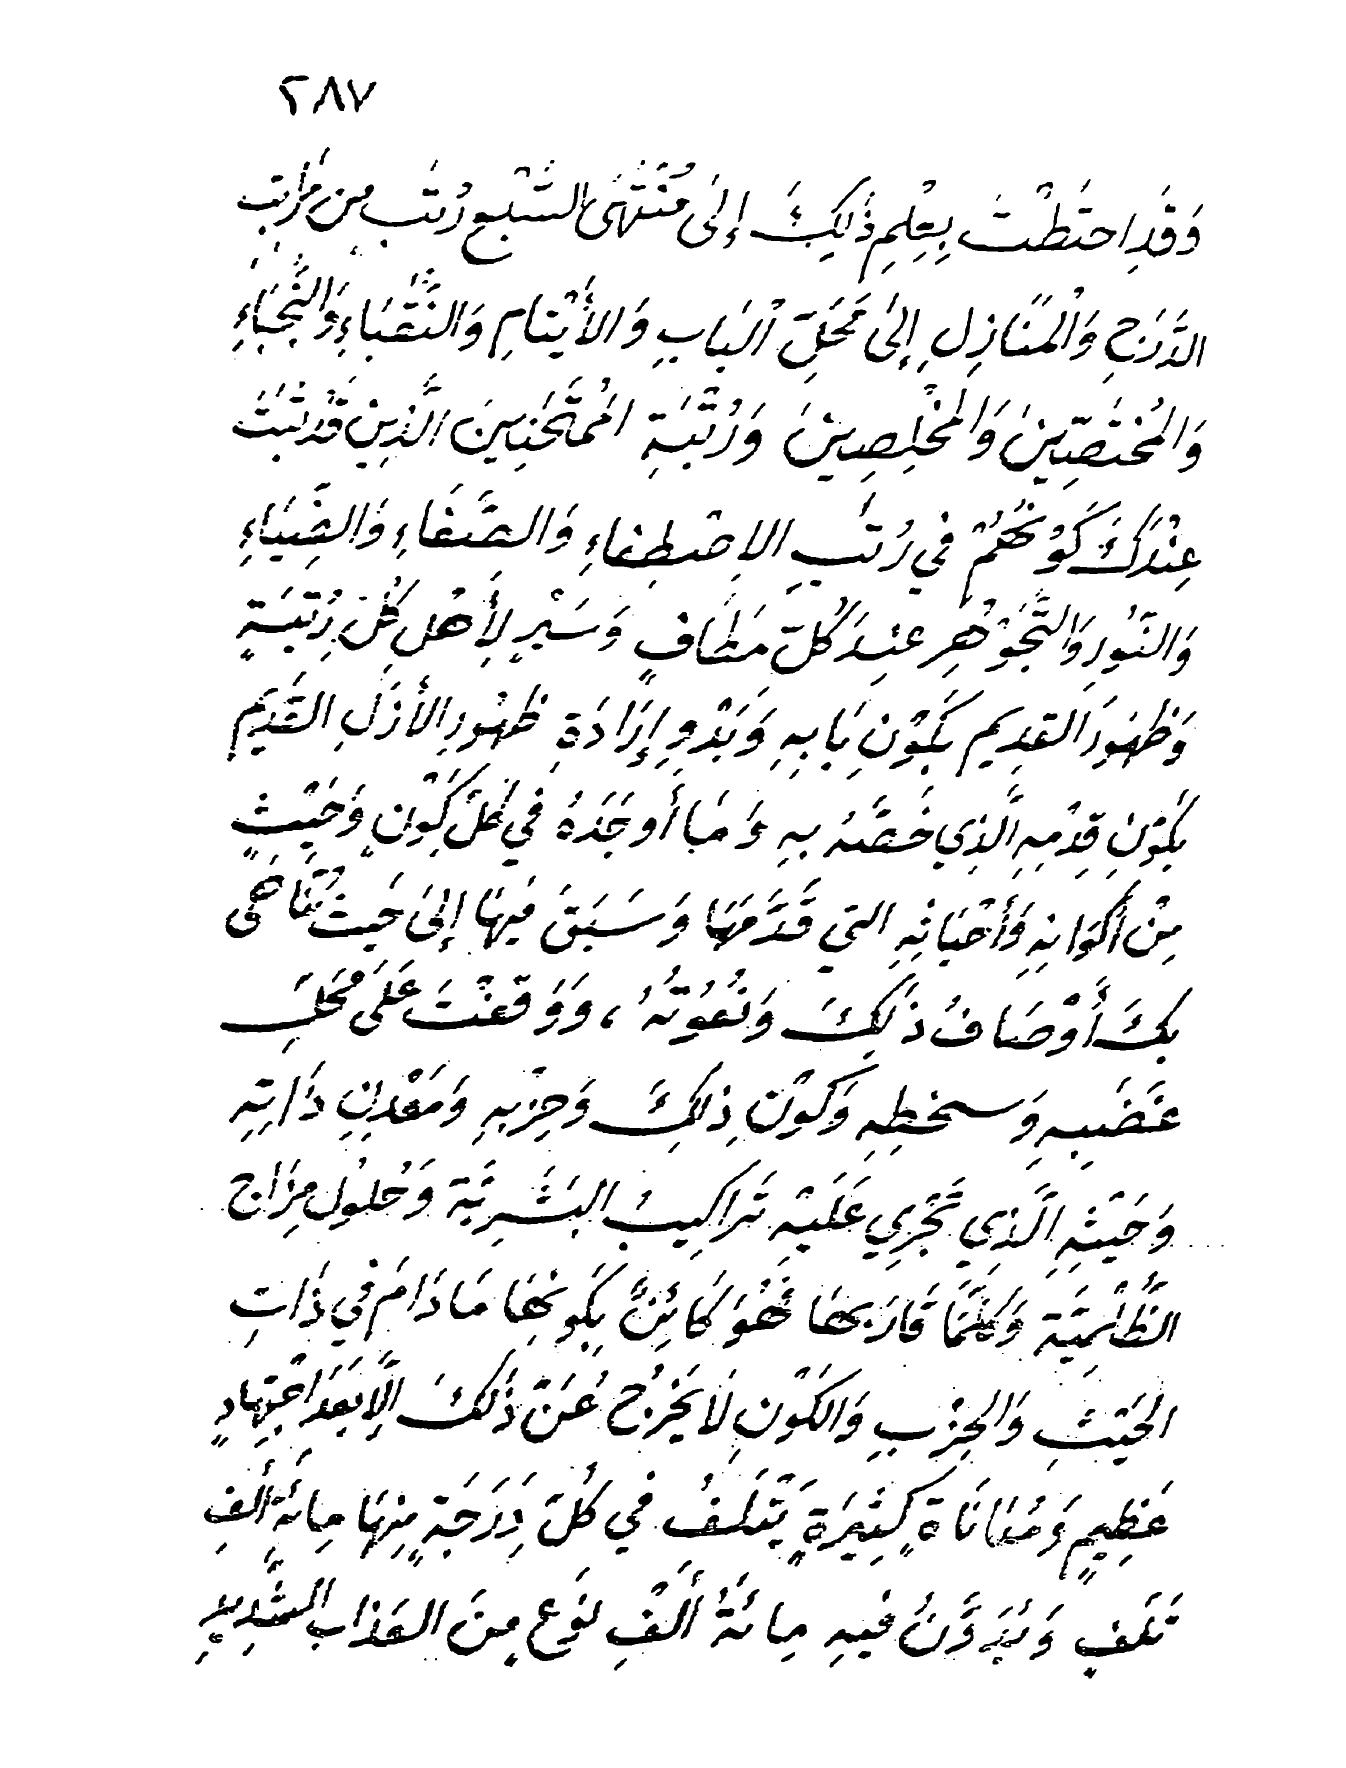 ٢٨٧
وَقَدِ احتَطْتَ بِعِلْمِ ذَلِكَ إِلَى مُنْتَهَى السَّبْعِ رُتَبٍ مِن مَرَاتِبِ
الدَّرَجِ وَالْمَنَازِلِ إِلَى مَحَلِّ الْبَابِ وَالأَيْتَامِ وَالنُّقَبَاءِ وَالنُّجَبَاءِ
وَالمُخْتَصِّينَ وَالمُخْلِصِينَ وَرُتْبَةِ المُمتَحَنِينَ الَّذِينَ قَدْ ثَبَتَ
عِنْدَكَ كَوْنُهُمْ فِي رُتَبِ الاِصْطِفاءِ وَالصَّفَاءِ وَالضِّيَاءِ
وَالنُّورِ وَالتَّجَوْهُرِ عِندَ كُلِّ مَطَافٍ وَسَيْرٍ لِأَهْلِ كُلِّ رُتْبَةٍ
وَظُهُورَ القَدِيم بِكَوْنِ بَابِهِ وَبَدْوِ إِرَادَةِ ظُهُورِ الأَزَلِ القَدِيمِ
بِكَوْنِ قِدْمِهِ الَّذِي خَصَّهُ بِهِ وَمَا أَوجَدَهُ فِي كُلِّ كَوْنٍ وَحَيْثٍ
مِنْ أَكْوَانِهِ وَأَحْيَاثِهِ التي قَدَّمَهَا وَسَبَقَ فِيهَا إِلَى حَيث تَنَاهَى
بكَ أَوْصَافُ ذَلِكَ وَنُعُوتُهُ، وَوَقَفْتَ عَلَى مَحَلِّ
غَضَبِهِ وَسخطِهِ وَكَوْنِ ذِلِكَ وَحِزْبِهِ وَمَعْدِنِ ذَاتِهِ
وَحَيْثِهِ الَّذِي تَجْرِي عَلَيْهِ تَراكِيبُ البَشَرِيَّة وَحُلولُ مِزَاج
الظُّلْمِيَّة وَكلَّمَا قَارَبهَا فَهُوَ كَائِنٌ بِكَونِهَا مَا دَامَ فِي ذَاتِ
الحَيْثِ وَالحِزْبِ وَالكَوْنِ لَا يَخْرُجُ عَنْ ذَلكَ إِلَّا بَعْدَ اجْتِهَادٍ
عَظِيمٍ وَمُعَانَاةٍ كَثِيرَةٍ يَتْلَفُ فِي كُلِّ دَرَجَةٍ مِنْهَا مِائَةَ أَلفِ
تَلَفٍ وَيُدَوَّنُ فيهِ مِائَةُ أَلْفِ نَوْعٍ مِنَ العَذَابِ الشَّدِيدِ